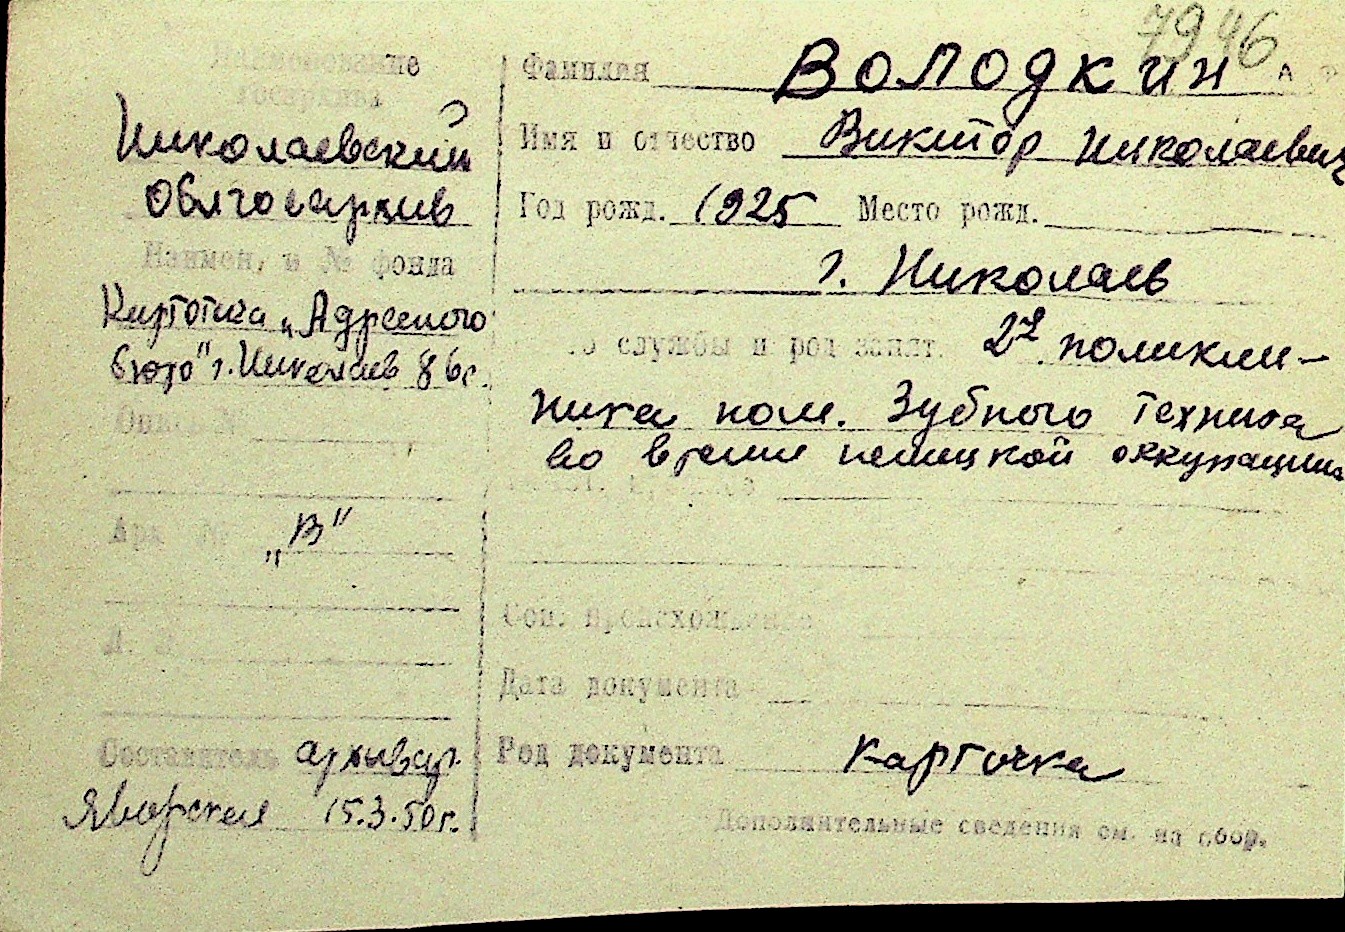 7946
Наименование
госархива
Николаевский
Облгосархив
Наимен. и № фонда
Картотека „Адресного
бюро" г. Николаев
Опись №
Арх. №
„В"
Л. Л.
Составитель архивар.
Яворская 15.3.50г.
Фамилия Володкин
Имя и отчество Виктор Николаевич
Год рожд. 1925 Место рожд.
г. Николаев
службы и род занят. 2я поликли-
ника пом. Зубного техника
во время немецкой оккупации
Соц. происхождение
Дата документа
Род документа карточка
Дополнительные сведения см. на обор.